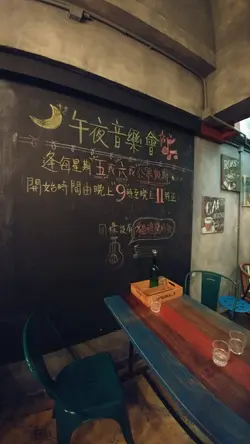 午夜音樂會
逢每星期五或六或公眾假期
開始時間由晚上9時至晚上11時正